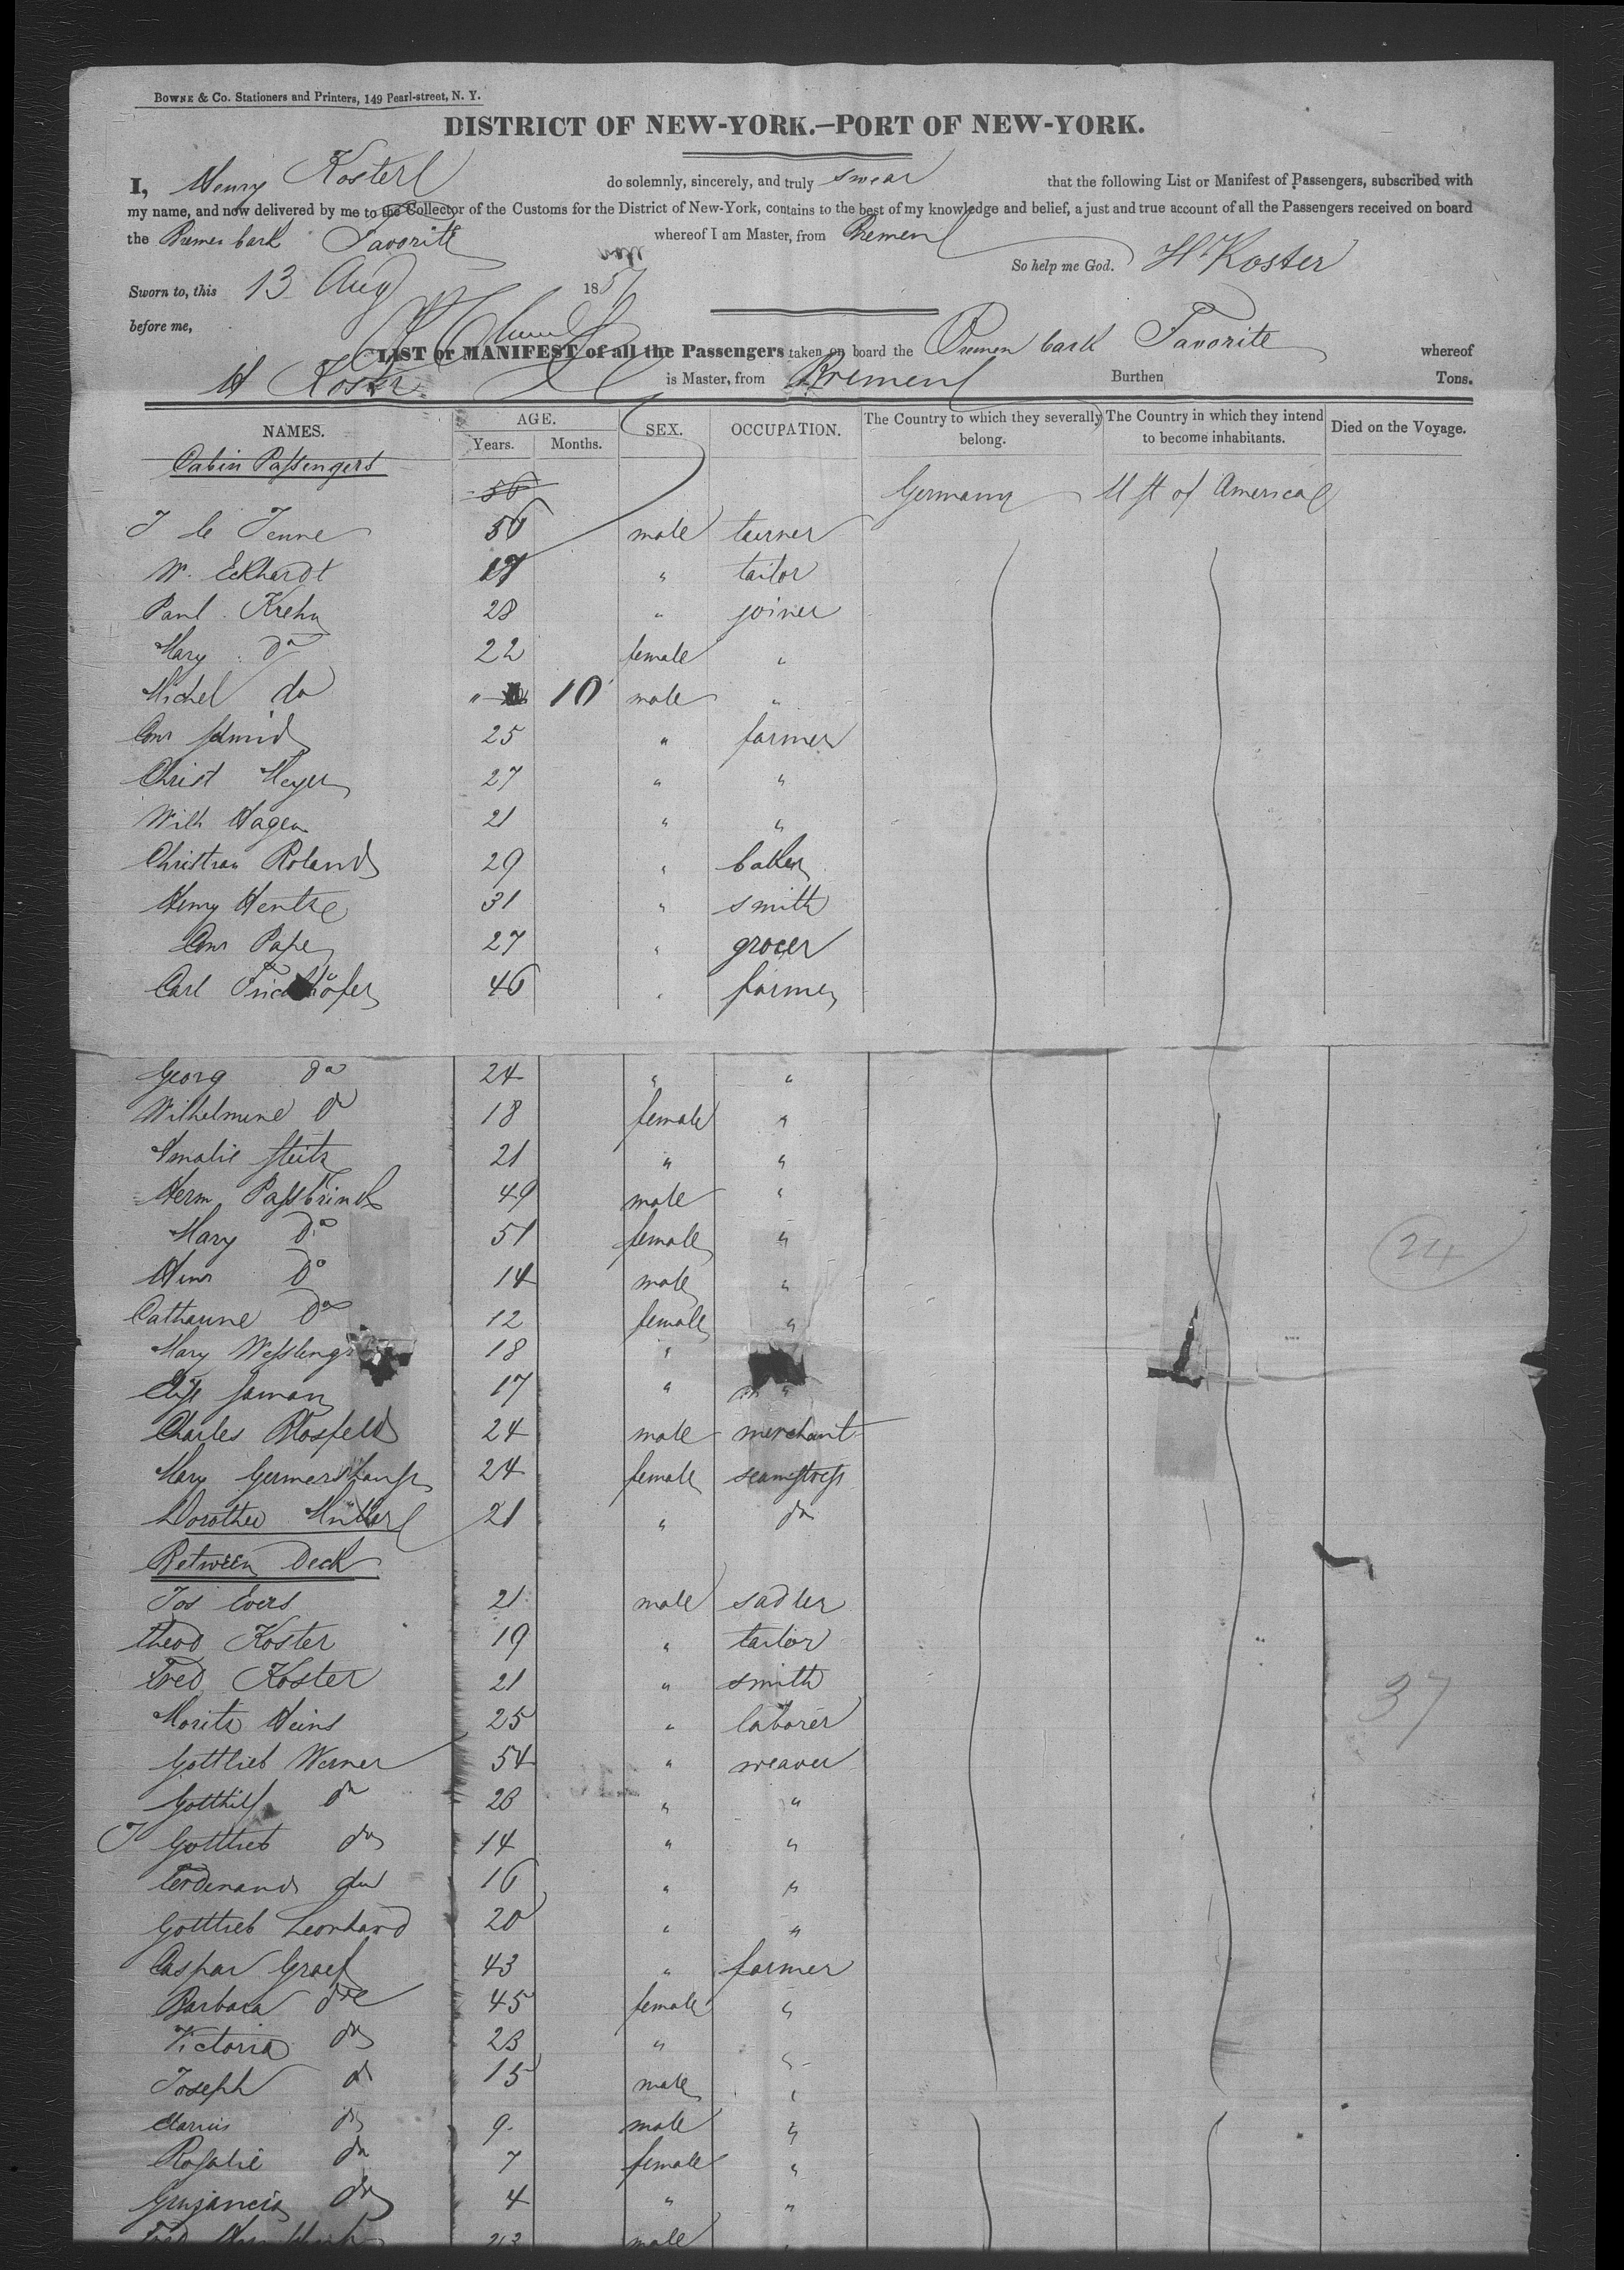 BOWNE & CO. Stationers and Printers, 149 Pearl-street, N. Y.
DISTRICT OF NEW-YORK.—PORT OF NEW-YORK.
I, Henry Koster do solemnly, sincerely, and truly swear that the following List or Manifest of Passengers, subscribed with
my name, and now delivered by me to the Collector of the Customs for the District of New-York, contains to the best of my knowledge and belief, a just and true account of all the Passengers received on board
the Bremer bark Favorite whereof I am Master, from Bremen
So help me God. H. Koster
Sworn to, this 13 Aug 1857
before me,
LIST or MANIFEST of all the Passengers taken on board the Bremen bark Favorite whereof
H Koster is Master, from Bremen Burthen Tons.
NAMES. AGE. Years. Months. SEX. OCCUPATION. The Country to which they severally belong. The Country in which they intend to become inhabitants. Died on the Voyage.
Cabin Passengers
56 Germany U St of America
J le Jenne 56 male turner
W. Eckhardt 17 " tailor
Paul Krehn 28 " joiner
Mary do 22 female "
Michel do " 10 male "
Conr Schmid 25 " farmer
Christ Meyer 27 " "
Wilh Hagen 21 " "
Christian Roland 29 " baker
Henry Hentze 31 " smith
Conr Pape 27 " grocer
Carl 46 " farmer
Georg do 24 " "
Wilhelmine do 18 female "
Amalie Steitz 21 " "
Herm. Passbrink 49 male "
Mary Do 51 female "
Hinr Do 14 male "
Catharine Do 12 female "
Mary 18 "
Elise 17 " "
Charles Blosfeld 24 male merchant
Mary 24 female seamstress
Dorothee Müller 21 " do
Between Deck
Jos Evers 21 male sadler
Theod Koster 19 " tailor
Fred Koster 21 " smith
Moritz Heins 25 " laborer
Gottlieb Werner 54 " weaver
Gotthilf do 20 " "
J Gottlieb do 14 " "
Ferdinand do 16 " "
Gottlieb Leonhard 20 " "
Caspar Graef 43 " farmer
Barbara do 45 female "
Victoria do 23 " "
Joseph do 15 male "
do 9 male "
Rosalie do 7 female "
do 4 " "
Fred 23 male "
24
37